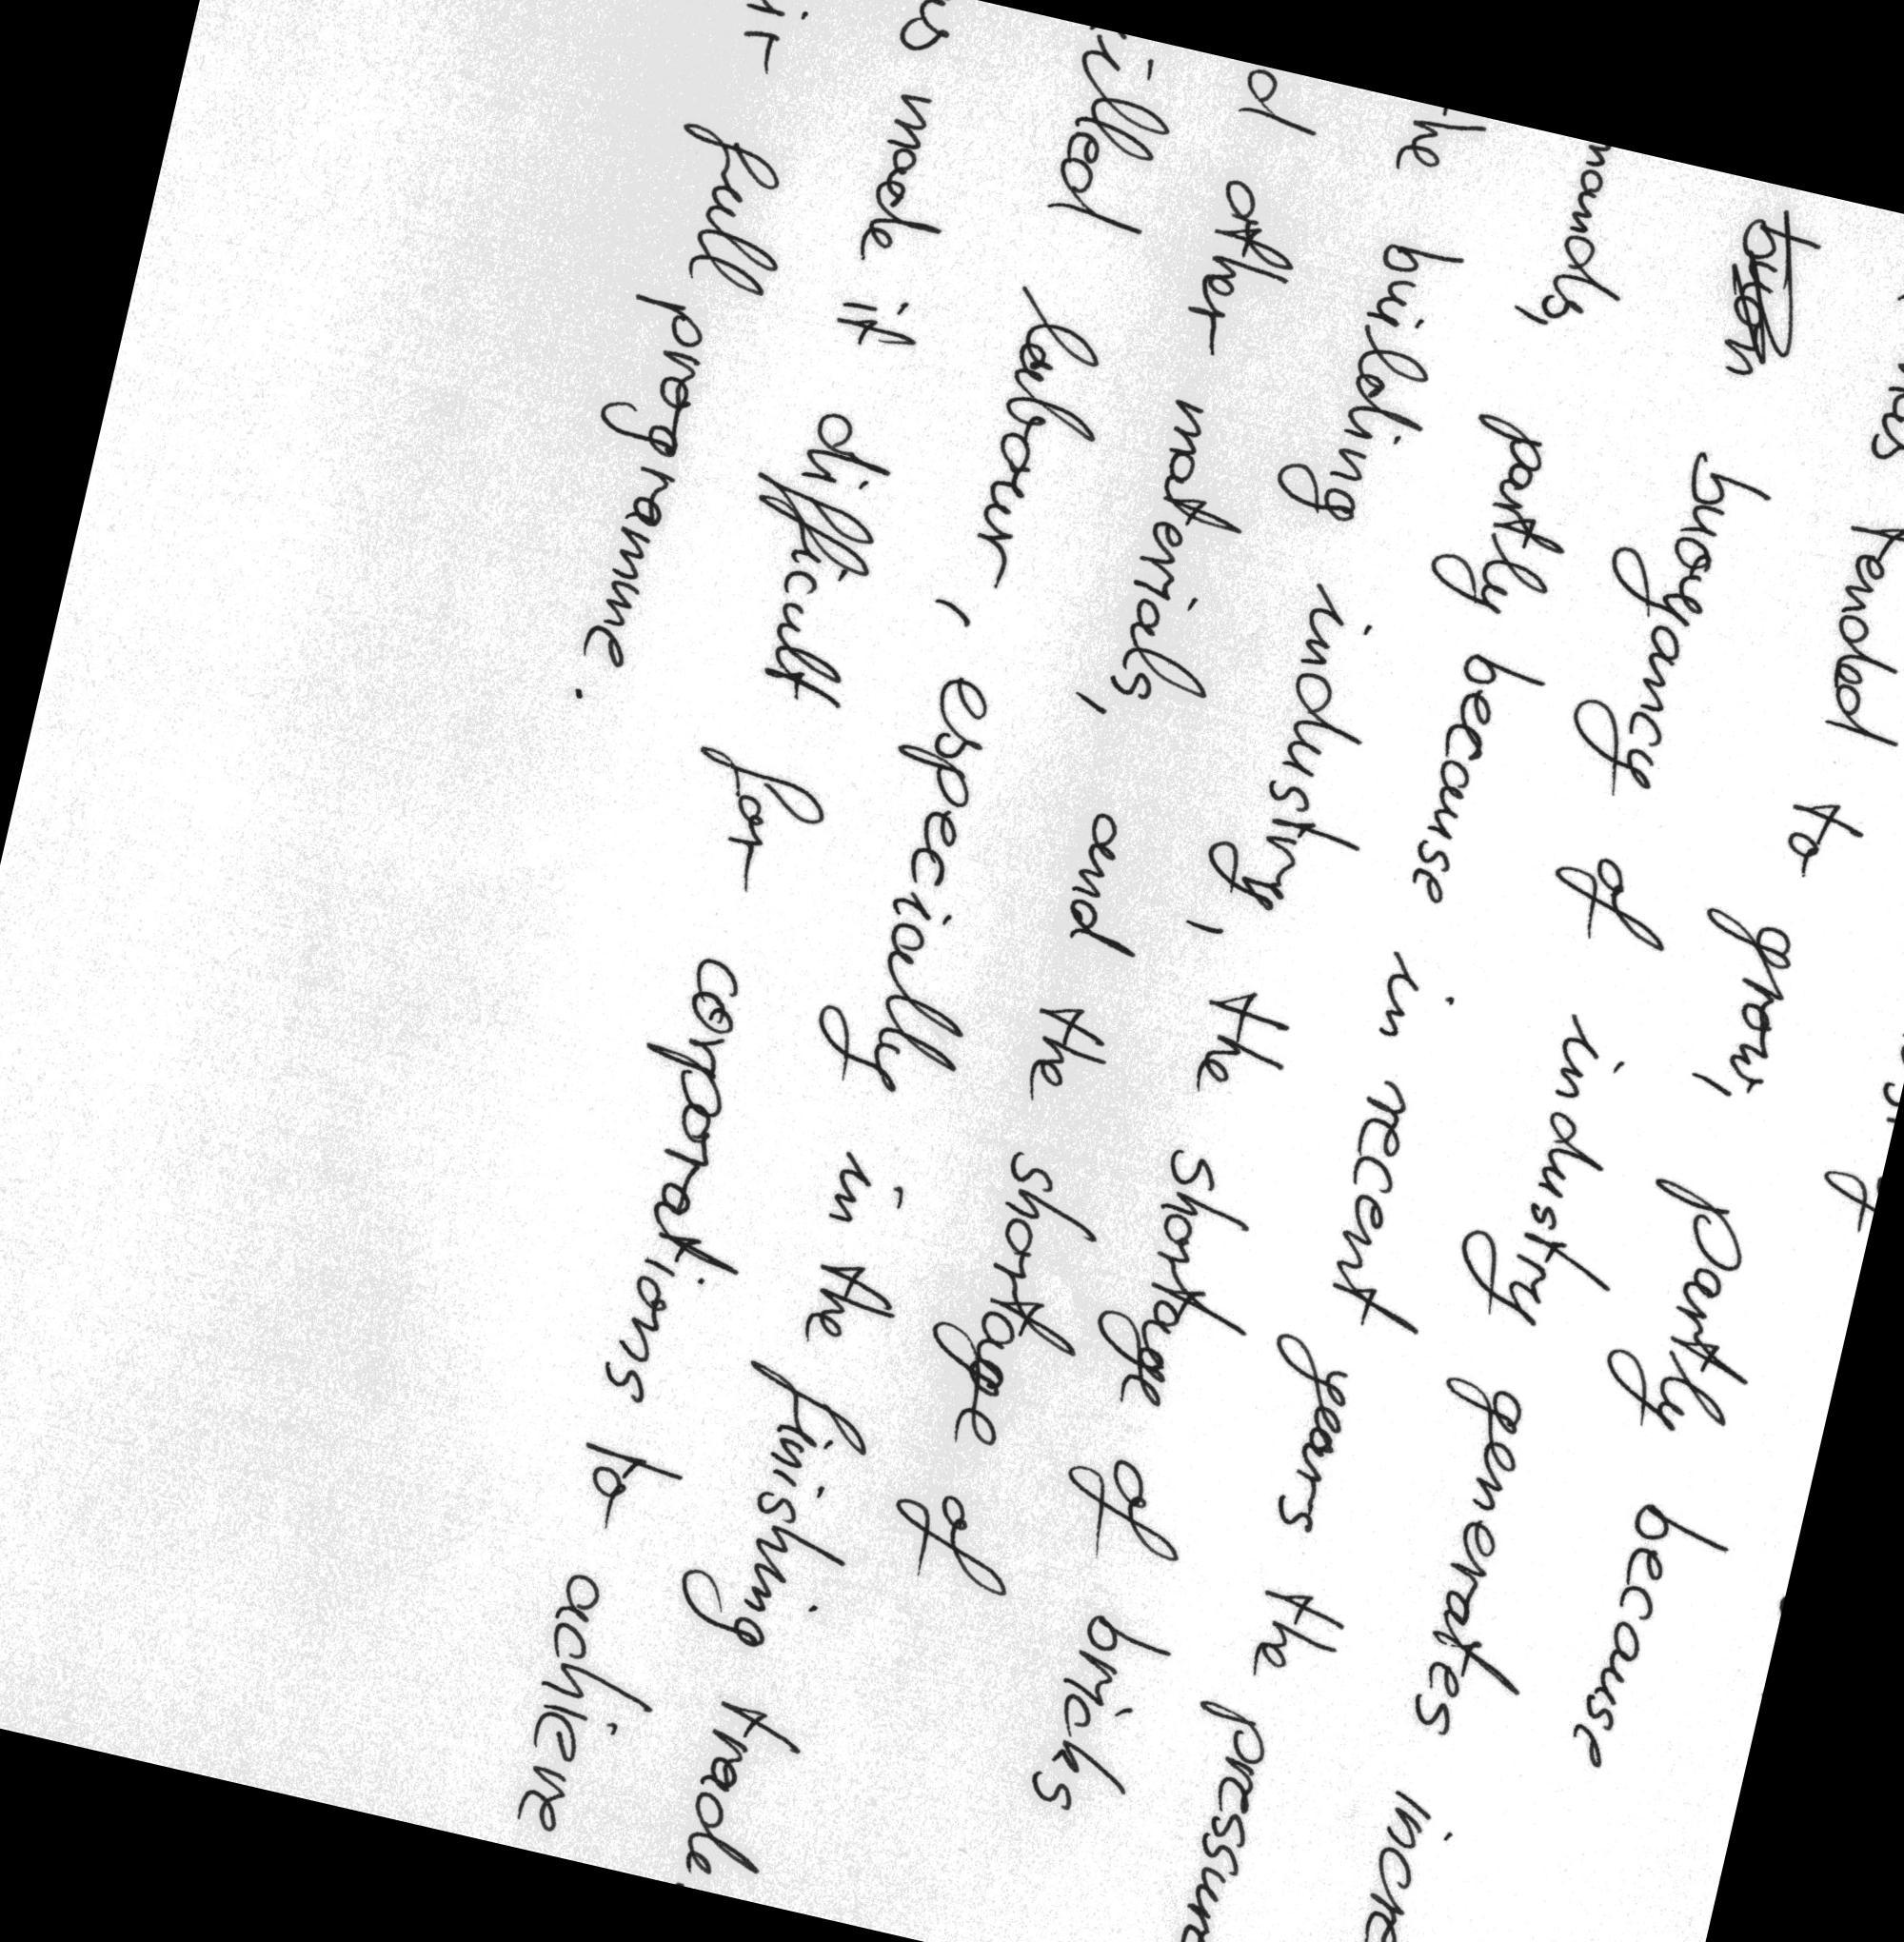 tended to grow, partly because
buoyancy of industry generates incre
mands, partly because in recent years the pressure
the building industry, the shortage of bricks
d other materials, and the shortage of
illed labour, especially in the finishing trade
s made it difficult for corporations to achieve
ir full programme.